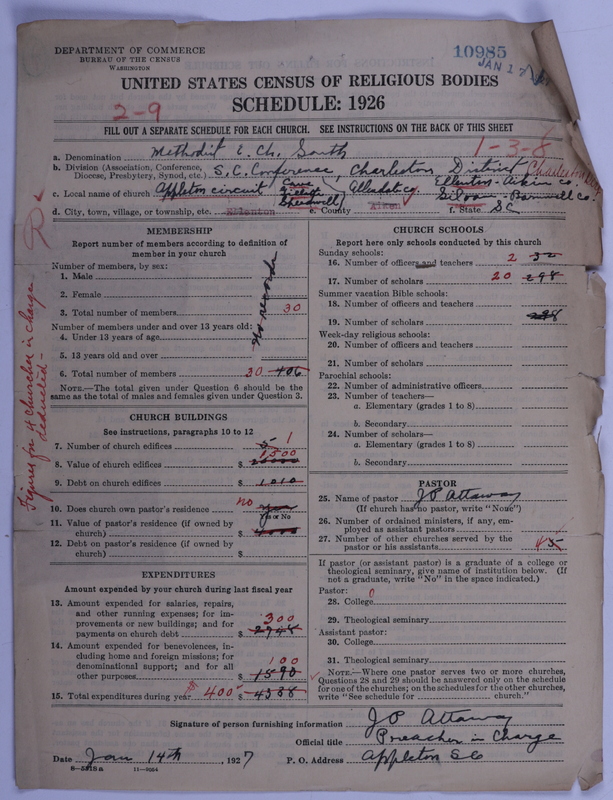 DEPARTMENT OF COMMERCE
BUREAU OF THE CENSUS
WASHINGTON
10985
JAN 17
UNITED STATES CENSUS OF RELIGIOUS BODIES
SCHEDULE: 1926
2-9
FILL OUT A SEPARATE SCHEDULE FOR EACH CHURCH. SEE INSTRUCTIONS ON THE BACK OF THIS SHEET
1-3-8
a. Denomination Methodist E. Ch. South
b. Division (Association, Conference, Diocese, Presbytery, Synod, etc.) S.C. Conference, Charleston District
Ellenton - Aiken co.
c. Local name of church Appleton circuit
Speedwell
Siloam - Barnwell co.
d. City, town, village, or township, etc. Ellenton e. County Aiken f. State SC
MEMBERSHIP
Report number of members according to definition of
member in your church
Number of members, by sex:
1. Male
2. Female
3. Total number of members 30
no records
Number of members under and over 13 years old:
4. Under 13 years of age
5. 13 years old and over
6. Total number of members 30 406
NOTE.—The total given under Question 6 should be the
same as the total of males and females given under Question 3.
CHURCH BUILDINGS
See instructions, paragraphs 10 to 12
7. Number of church edifices 5 1
8. Value of church edifices $ 1500
9. Debt on church edifices $ 1010
10. Does church own pastor's residence no yes
Yes or No
11. Value of pastor's residence (if owned by
church) $
12. Debt on pastor's residence (if owned by
church) $
EXPENDITURES
Amount expended by your church during last fiscal year
13. Amount expended for salaries, repairs,
and other running expenses; for im-
provements or new buildings; and for
payments on church debt $ 300 2748
14. Amount expended for benevolences, in-
cluding home and foreign missions; for
denominational support; and for all
other purposes $ 100 1590
15. Total expenditures during year $ 400 4338
Figures for 4 churches in charge
deducted-
CHURCH SCHOOLS
Report here only schools conducted by this church
Sunday schools:
16. Number of officers and teachers 2 32
17. Number of scholars 20 298
Summer vacation Bible schools:
18. Number of officers and teachers
19. Number of scholars 298
Week-day religious schools:
20. Number of officers and teachers
21. Number of scholars
Parochial schools:
22. Number of administrative officers
23. Number of teachers—
a. Elementary (grades 1 to 8)
b. Secondary
24. Number of scholars—
a. Elementary (grades 1 to 8)
b. Secondary
PASTOR
25. Name of pastor J P Attaway
(If church has no pastor, write "None")
26. Number of ordained ministers, if any, em-
ployed as assistant pastors
27. Number of other churches served by the
pastor or his assistants 5
If pastor (or assistant pastor) is a graduate of a college or
theological seminary, give name of institution below. (If
not a graduate, write "No" in the space indicated.)
Pastor: 0
28. College
29. Theological seminary
Assistant pastor:
30. College
31. Theological seminary
NOTE.—Where one pastor serves two or more churches,
Questions 28 and 29 should be answered only on the schedule
for one of the churches; on the schedules for the other churches,
write "See schedule for church."
Signature of person furnishing information J P Attaway
Official title Preacher in Charge
Date Jan 14th, 1927 P. O. Address Appleton S C
11—9554